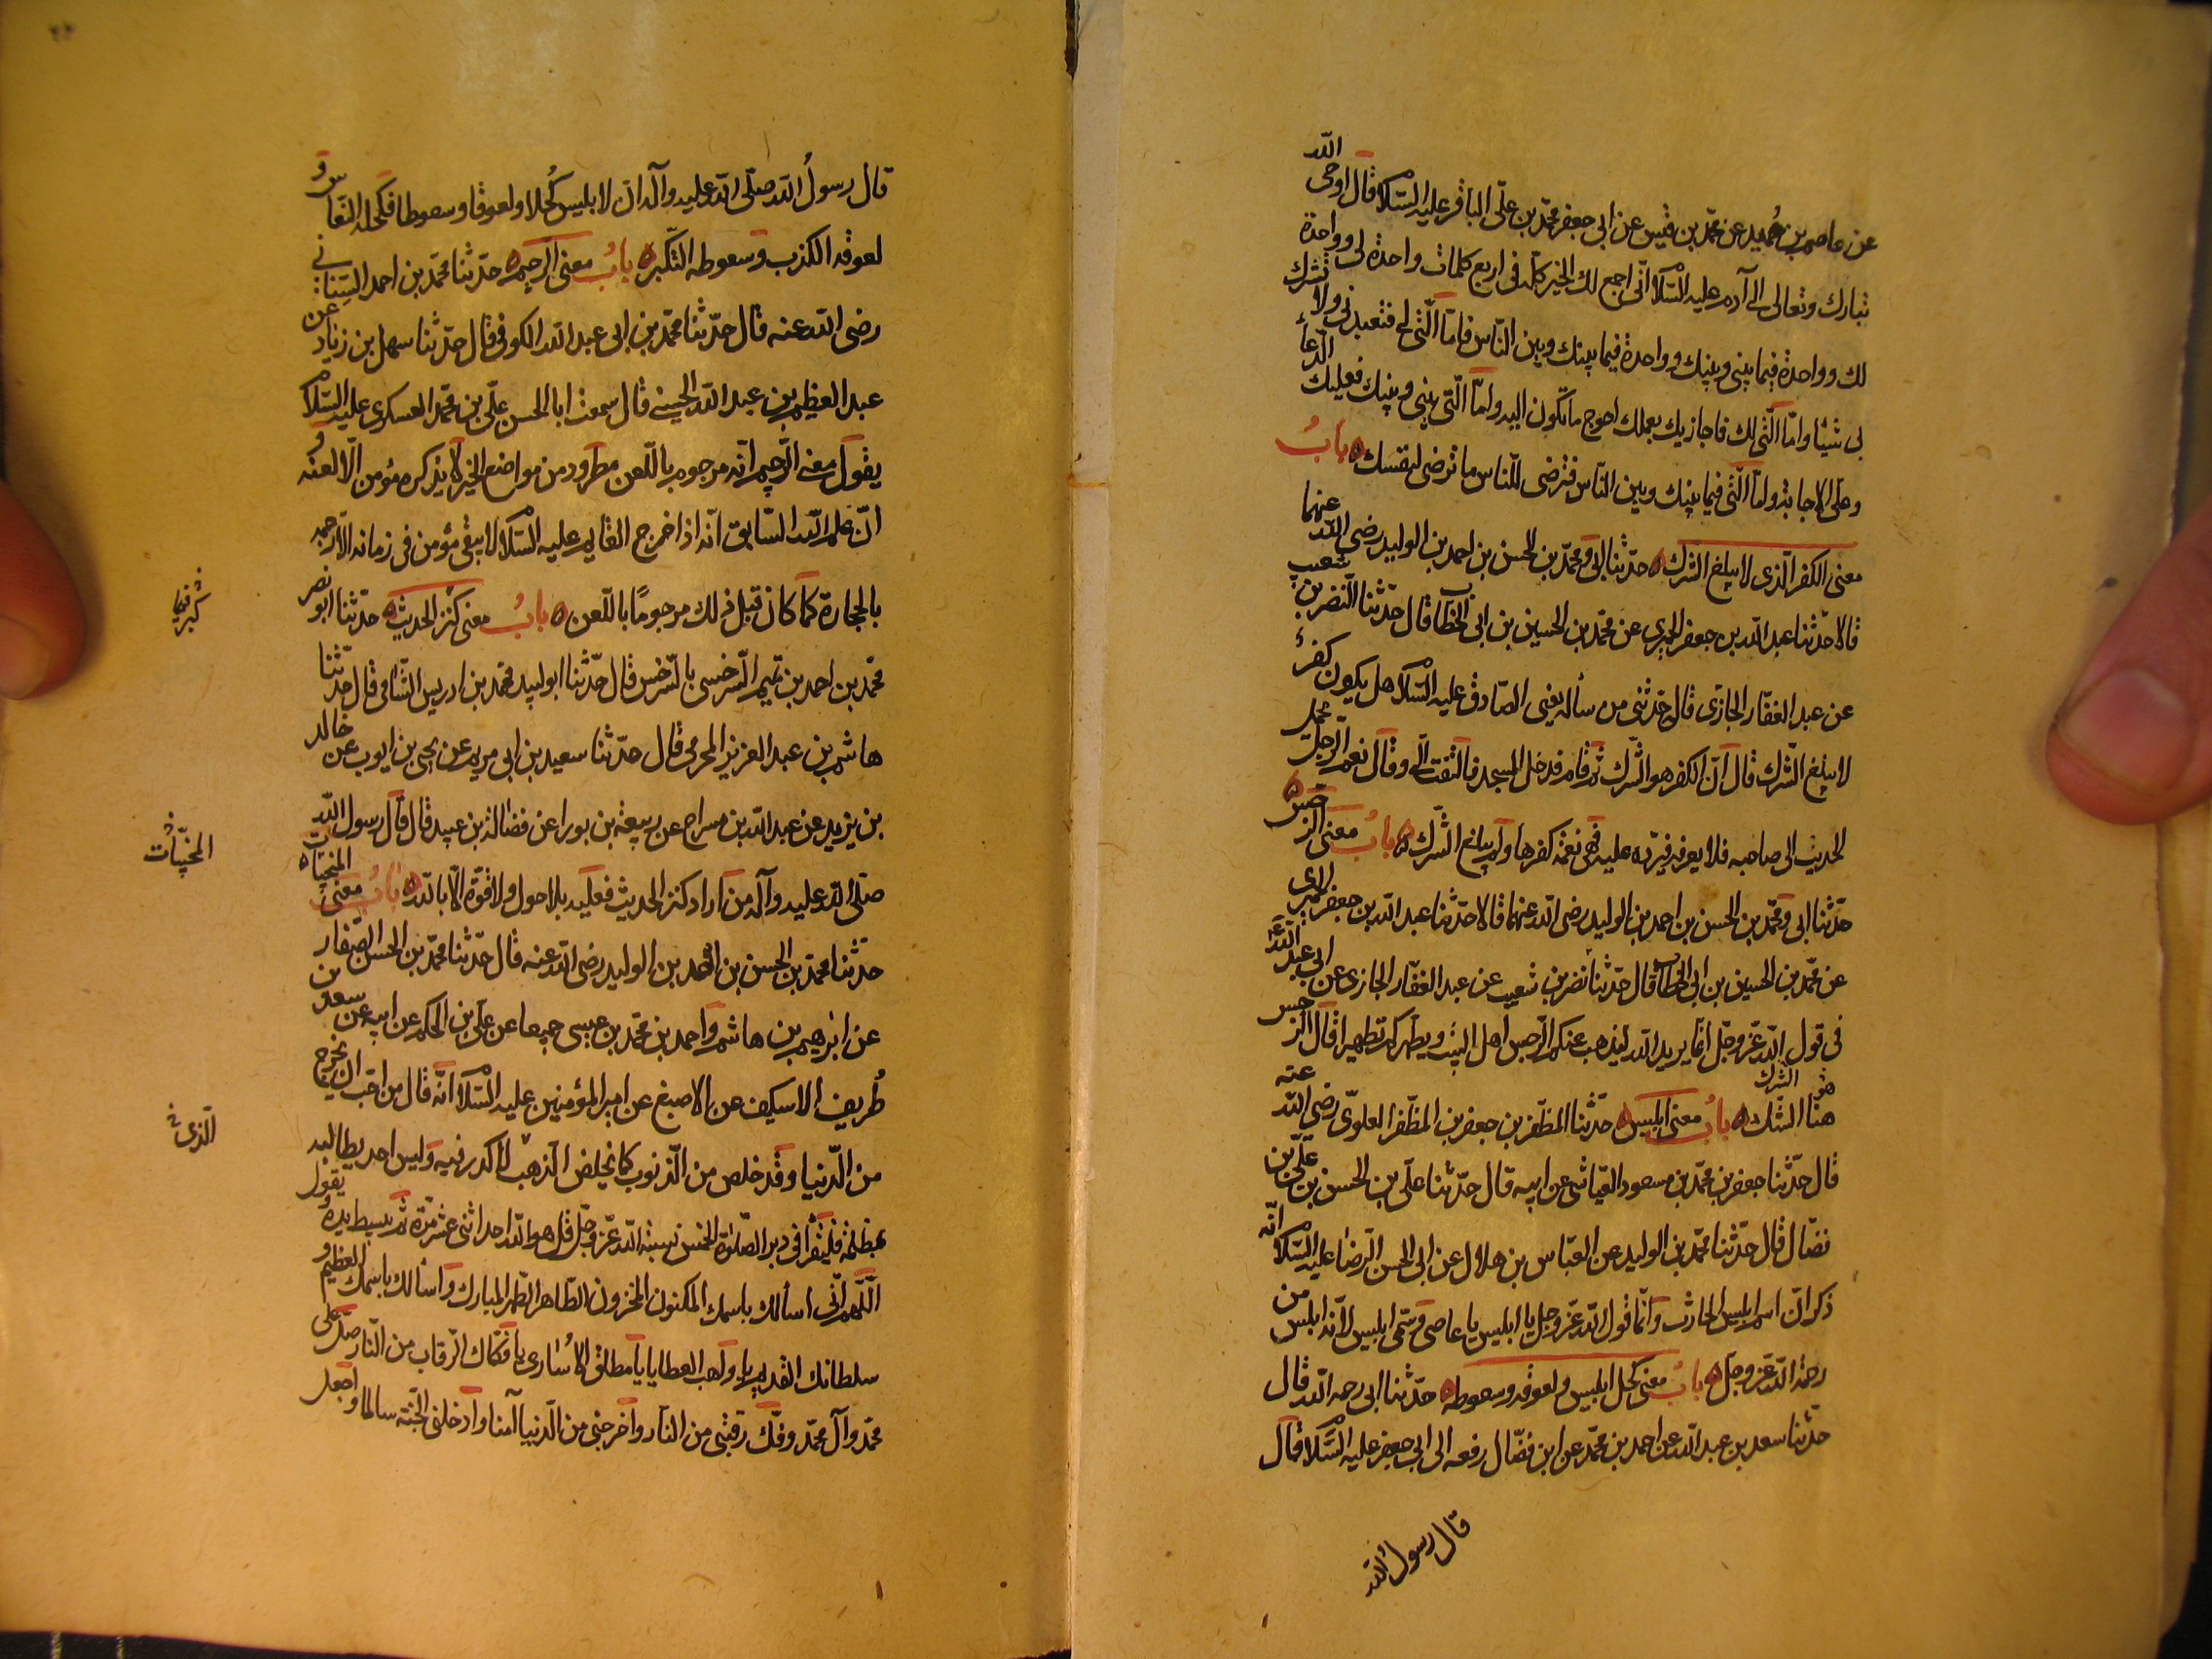 عن عاصم بن حميد عن محمّد بن قيس عن ابى جعفر محمّد بن علىّ الباقر عليه السّلام قال اوحى الله
تبارك وتعالى الى آدم عليه السّلام انّى اجمع لك الخير كلّه فى اربع كلمات واحدة لى وواحدة
لك وواحدة فيما بينى وبينك وواحدة فيما بينك وبين النّاس فامّا الّتى لى فتعبدنى ولا تشرك
بى شيئا وامّا الّتى لك فاجازيك بعملك احوج ما تكون اليه وامّا الّتى بينى وبينك فعليك الدّعاء
وعلىّ الاجابة وامّا الّتى فيما بينك وبين النّاس فترضى للنّاس ما ترضى لنفسك ه بابُ
معنى الكفر الّذى لا يبلغ الشّرك ه حدّثنا ابى ومحمّد بن الحسن بن احمد بن الوليد رضى الله عنهما
قالا حدّثنا عبد الله بن جعفر الحميرى عن محمّد بن الحسين بن ابى الخطّاب قال حدّثنا النّضر بن شعيب
عن عبد الغفّار الجازى قال حدّثنى من سأله يعنى الصّادق عليه السّلام هل يكون كفرٌ
لا يبلغ الشّرك قال انّ الكفر هو الشّرك ثم قام فدخل المسجد فالتفت الىّ وقال نعم الرّجل يحمل
الحديث الى صاحبه فلا يعرفه فيردّه عليه فهى نعمة كفرها ولم يبلغ الشّرك ه بابُ معنى الرّجس ه
حدّثنا ابى ومحمّد بن الحسن بن احمد بن الوليد رضى الله عنهما قالا حدّثنا عبد الله بن جعفر الحميرى
عن محمّد بن الحسين بن ابى الخطّاب قال حدّثنا نضر بن شعيب عن عبد الغفّار الجازى عن ابى عبد الله
فى قول الله عزّ وجلّ انّما يريد الله ليذهب عنكم الرّجس اهل البيت ويطهّركم تطهيرا قال الرّجس
هو الشرك
هنا الشّك ه بابُ معنى ابليس ه حدّثنا المظفّر بن جعفر بن المظفّر العلوىّ رضى الله عنه
قال حدّثنا جعفر بن محمّد بن مسعود العيّاشى عن ابيه قال حدّثنا علىّ بن الحسن بن علىّ بن
فضّال قال حدّثنا محمّد بن الوليد عن العبّاس بن هلال عن ابى الحسن الرّضا عليه السّلام انّه
ذكر انّ اسم ابليس الحارث وانّما قول الله عزّ وجل يا ابليس يا عاصى وسمّى ابليس لانّه ابلس من
رحمة الله عزّ وجلّ ه بابُ معنى كحل ابليس ولعوقه وسعوطه ه حدّثنا ابى رحمه الله قال
حدّثنا سعد بن عبد الله عن احمد بن محمّد عن ابن فضّال رفعه الى ابى جعفر عليه السّلام قال قال
قال رسول الله
قال رسولُ الله صلّى الله عليه وآله انّ لابليس كُحلا ولعوقا وسعوطا فكحله النّعاس و
لعوقه الكذب وسعوطه التّكبّر ه بابُ معنى الرّجيم ه حدّثنا محمّد بن احمد السّنانى
رضى الله عنه قال حدّثنا محمّد بن ابى عبد الله الكوفى قال حدّثنا سهل بن زياد عن
عبد العظيم بن عبد الله الحسنى قال سمعت ابا الحسن علىّ بن محمّد العسكرى عليه السّلام
يقول معنى الرّجيم انّه مرجوم باللّعن مطرود من مواضع الخير لا يذكره مؤمن الّا لعنه و
انّ فى علم الله السّابق انّه اذا خرج القايم عليه السّلام لا يبقى مؤمن فى زمانه الّا رجمه
بالحجارة كما كان قبل ذلك مرجومًا باللّعن ه بابُ معنى كنز الحديث ه حدّثنا ابو نصر
محمّد بن احمد بن تميم السّرخسى بالسّرخس قال حدّثنا ابو لبيد محمّد بن ادريس الشّامى قال حدّثنا
هاشم بن عبد العزيز المخرمى قال حدّثنا سعيد بن ابى مريم عن يحيى بن ايوب عن خالد
بن يزيد عن عبد الله بن مسراح عن ربيعة بن بورا عن فضالة بن عبيد قال قال رسول الله
صلّى الله عليه وآله من اراد كنز الحديث فعليه بلا حول ولا قوّة الّا بالله ه بابُ معنى المنجيات ه
حدّثنا محمّد بن الحسن بن احمد بن الوليد رضى الله عنه قال حدّثنا محمّد بن الحسن الصّفار
عن ابرهيم بن هاشم واحمد بن محمّد بن عيسى جميعا عن علىّ بن الحكم عن ابيه عن سعد بن
طُريف الاسكيف عن الاصبغ عن امير المؤمنين عليه السّلام انّه قال من احبّ ان يخرج
من الدّنيا وقد خلص من الذّنوب كما يخلص الذّهب لا كدر فيه وليس احد يطالبه
بمظلمة فليقرأ فى دبر الصّلوة الخمس نسبة الله عزّ وجّل قل هو الله احد اثنى عشر مرّة ثم يبسط يده و يقول
اللّهم انّى اسألك باسمك المكنون المخزون الطّاهر الطّهر المبارك واسألك باسمك العظيم و
سلطانك القديم يا واهب العطايا يا مطلق الاُسارى يا فكّاك الرّقاب من النّار صلّ على
محمّد وآل محمّد وفكّ رقبتى من النّار واخرجنى من الدّنيا آمنا وادخلنى الجنّة سالما واجعل
المخبّيات خ
الّذى خ